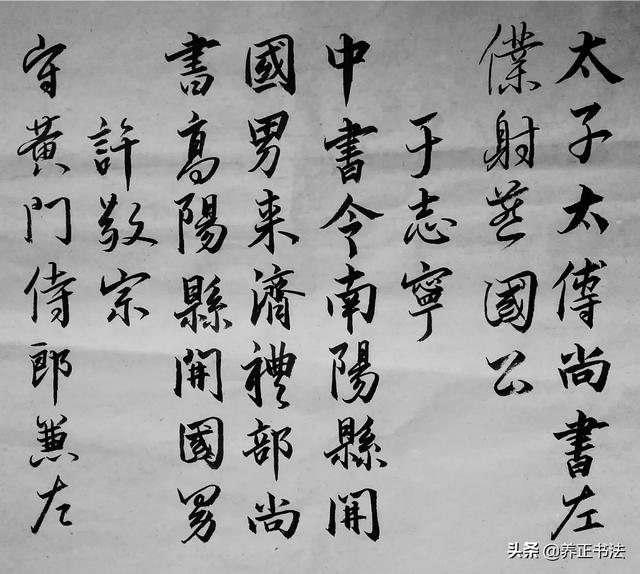 太子太傅尚書左
僕射燕國公
于志寧
中書令南陽縣開
國男来濟禮部尚
書高陽縣開國男
許敬宗
守黃門侍郎兼左
头条 @养正书法